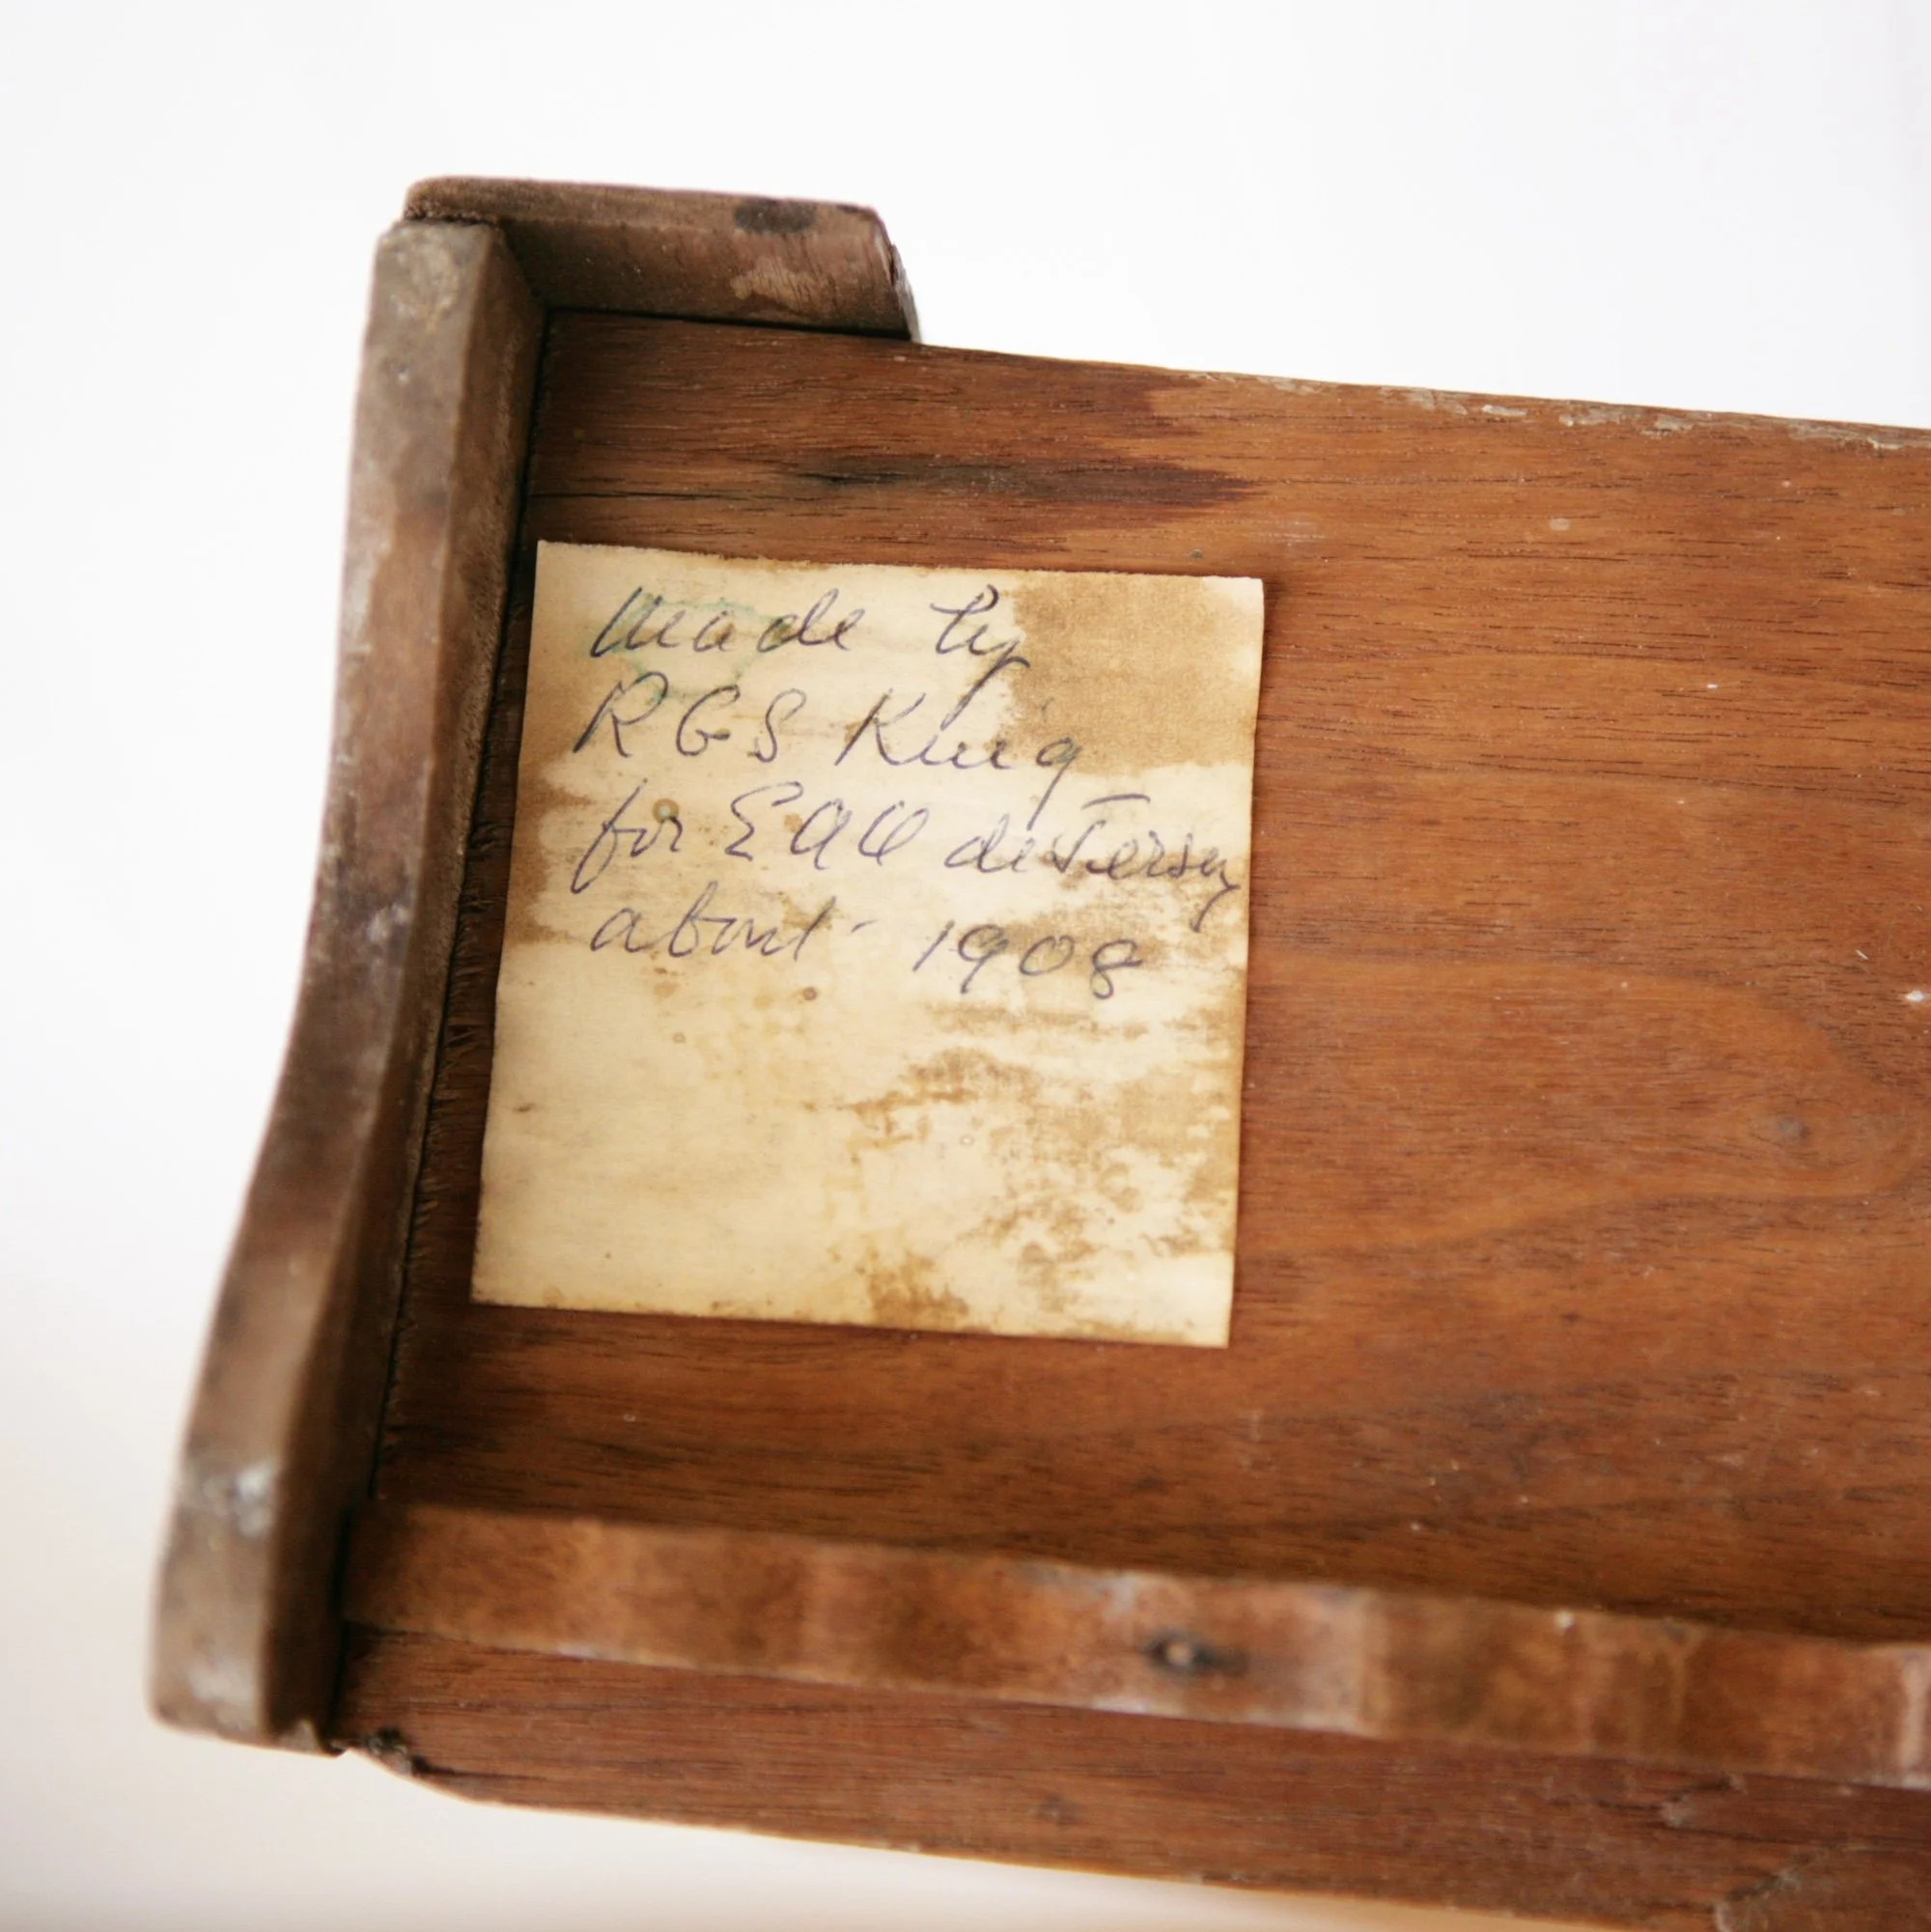 made by
R G S King
for E A O de Jersey
about 1908